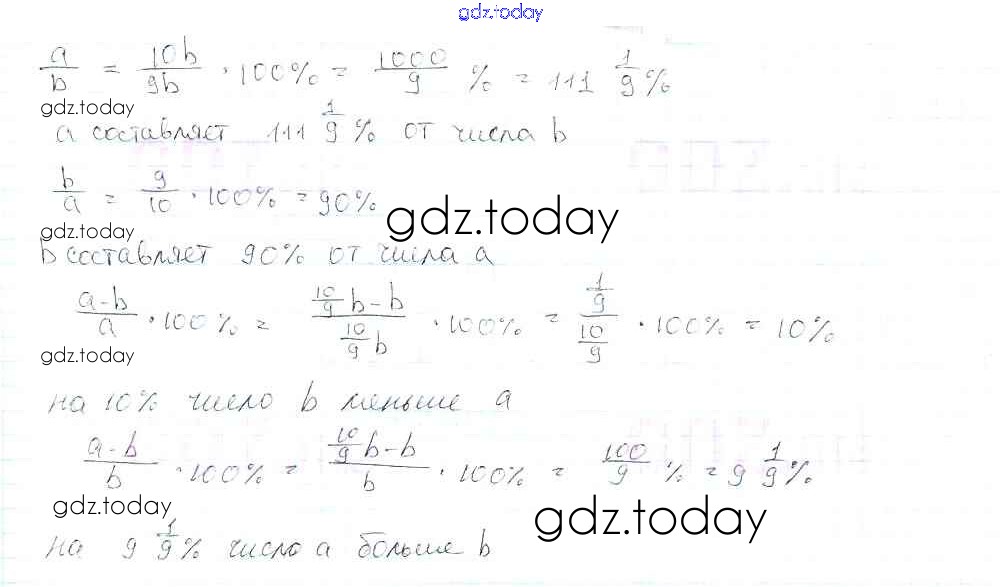 gdz.today
a/b = 10b/9b · 100% = 1000/9 % = 111 1/9 %
gdz.today
a составляет 111 1/9 % от числа b
b/a = 9/10 · 100% = 90%
gdz.today
gdz.today
b составляет 90% от числа a
(a-b)/a · 100% = (10/9 b - b)/(10/9 b) · 100% = (1/9)/(10/9) · 100% = 10%
gdz.today
на 10% число b меньше a
(a-b)/b · 100% = (10/9 b - b)/b · 100% = 100/9 % = 9 1/9 %
gdz.today
gdz.today
на 9 1/9 % число a больше b